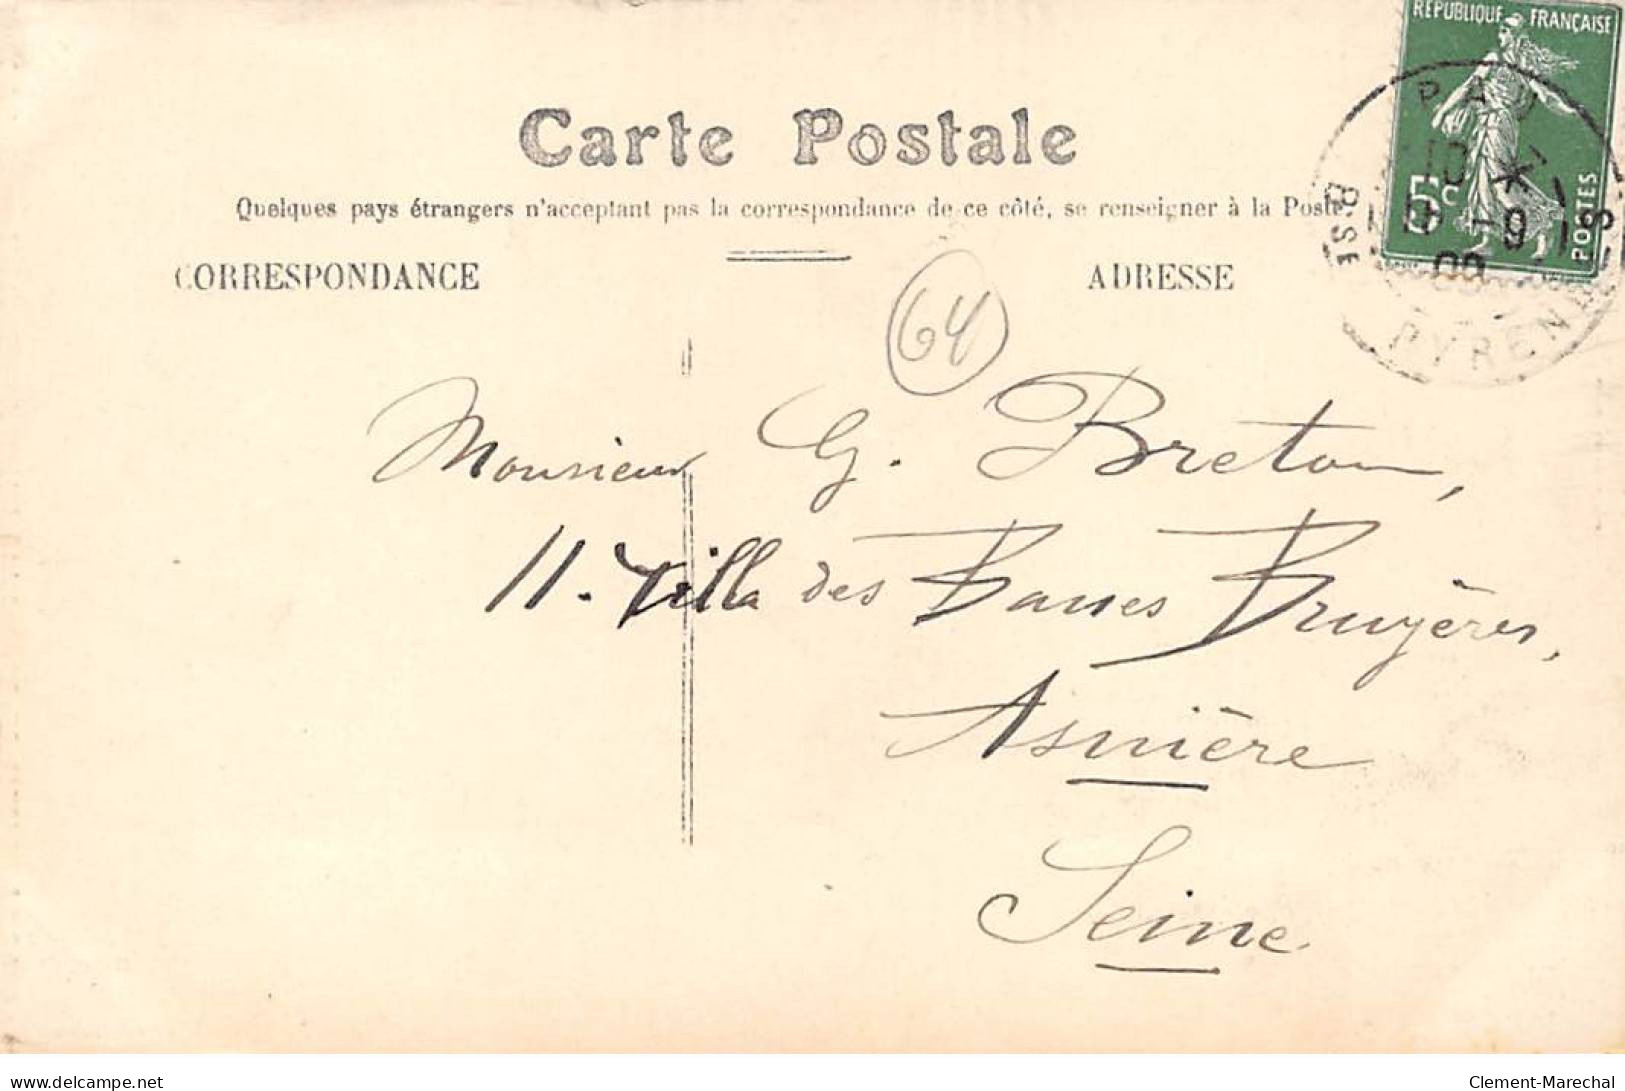 RÉPUBLIQUE FRANÇAISE
5c
POSTES
PAU
Carte Postale
Quelques pays étrangers n'acceptant pas la correspondance de ce côté, se renseigner à la Poste.
CORRESPONDANCE
ADRESSE
64
Monsieur G. Breton,
11. Villa des Basses Bruyères,
Asnière
Seine
www.delcampe.net
Clement-Marechal